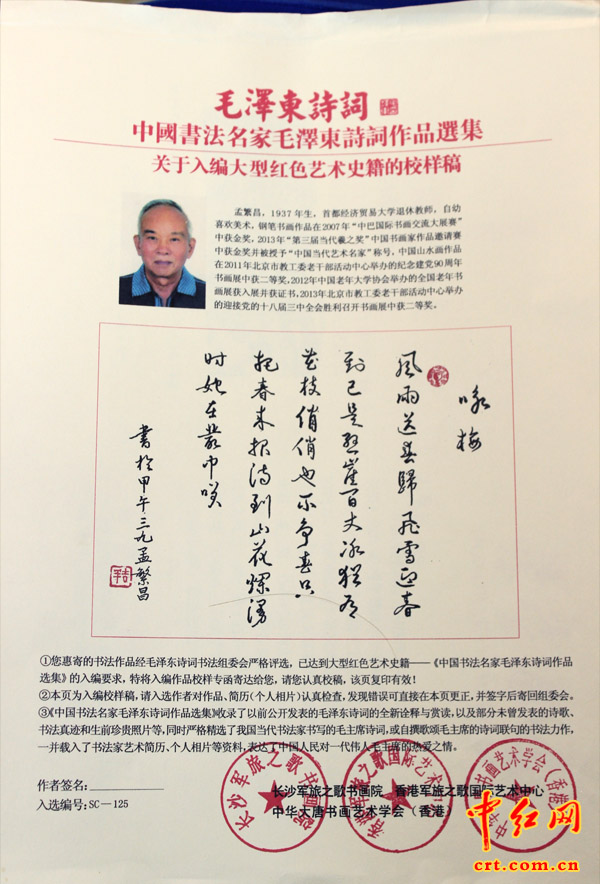 毛澤東詩詞
中國書法名家毛澤東詩詞作品選集
关于入编大型红色艺术史籍的校样稿
孟繁昌，1937年生，首都经济贸易大学退休教师，自幼
喜欢美术，钢笔书画作品在2007年“中巴国际书画交流大展赛”
中获金奖，2013年“第三届当代羲之奖”中国书画家作品邀请赛
中获金奖并被授予“中国当代艺术名家”称号，中国山水画作品
在2011年北京市教工委老干部活动中心举办的纪念建党90周年
书画展中获二等奖，2012年中国老年大学协会举办的全国老年书
画展获入展并获证书，2013年北京市教工委老干部活动中心举办
的迎接党的十八届三中全会胜利召开书画展中获二等奖。
咏梅
風雨送春歸飛雪迎春
到已是懸崖百丈冰猶有
花枝俏俏也不争春只
把春来报待到山花爛漫
时她在叢中笑
書於甲午三九孟繁昌
①您惠寄的书法作品经毛泽东诗词书法组委会严格评选，已达到大型红色艺术史籍——《中国书法名家毛泽东诗词作品
选集》的入编要求，特将入编作品校样专函寄达给您，请您认真校稿，该页复印有效！
②本页为入编校样稿，请入选作者对作品、简历(个人相片)认真检查，发现错误可直接在本页更正，并签字后寄回组委会。
③《中国书法名家毛泽东诗词作品选集》收录了以前公开发表的毛泽东诗词的全新诠释与赏读，以及部分未曾发表的诗歌、
书法真迹和生前珍贵照片等，同时严格精选了我国当代书法家书写的毛主席诗词，或自撰歌颂毛主席的诗词联句的书法力作，
一并载入了书法家艺术简历、个人相片等资料，表达了中国人民对一代伟人毛主席的热爱之情。
作者签名：
入选编号：SC—125
长沙军旅之歌书画院 香港军旅之歌国际艺术中心
中华大唐书画艺术学会（香港）
长沙军旅之歌书画院
香港军旅之歌国际艺术中心
中红网
crt.com.cn